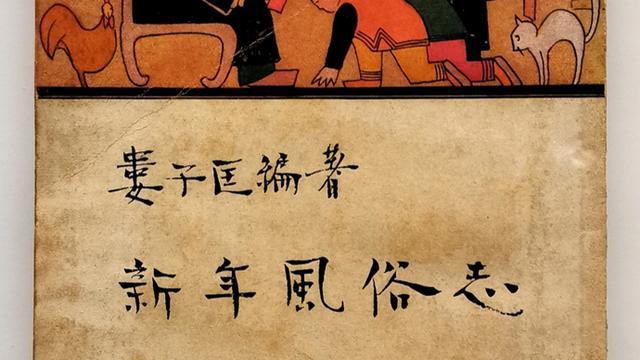 婁子匡編著
新年風俗志